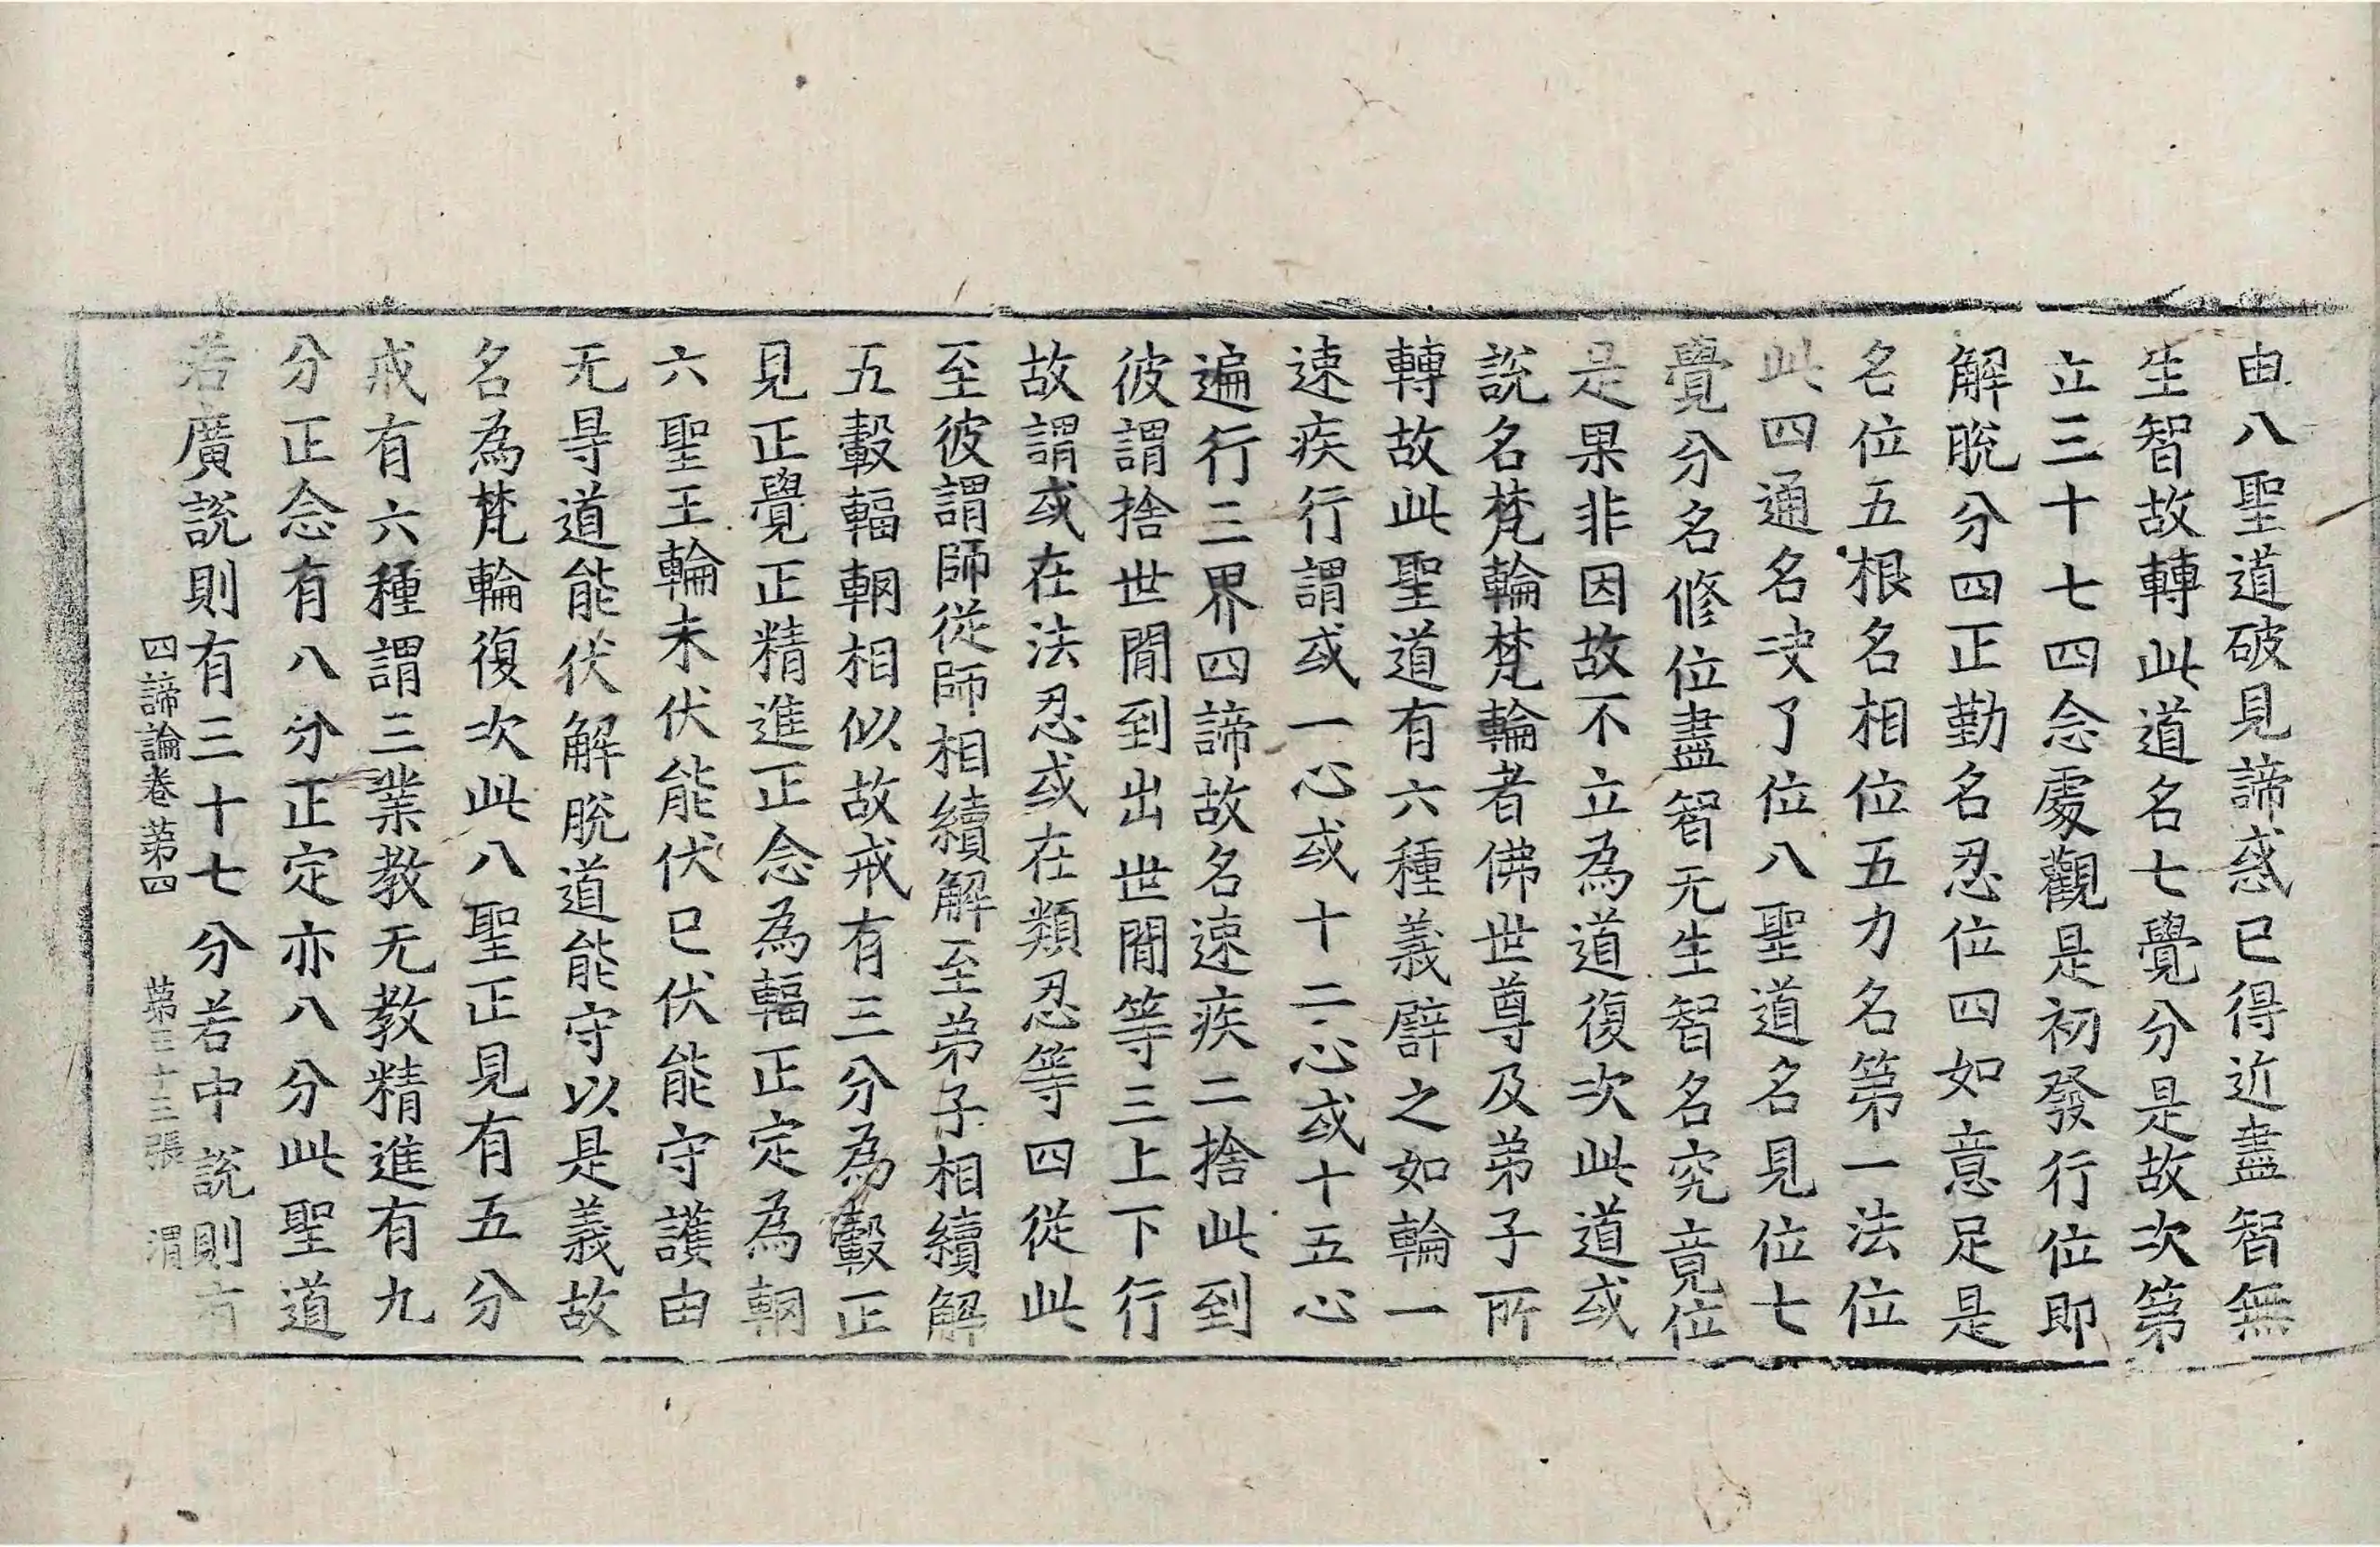 由八聖道破見諦惑已得近盡智無
生智故轉此道名七覺分是故次第
立三十七四念處觀是初發行位即
解脫分四正勤名忍位四如意足是
名位五根名相位五力名第一法位
此四通名决了位八聖道名見位七
覺分名修位盡智无生智名究竟位
是果非因故不立為道復次此道或
說名梵輪梵輪者佛世尊及弟子所
轉故此聖道有六種義譬之如輪一
速疾行謂或一心或十二心或十五心
遍行三界四諦故名速疾二捨此到
彼謂捨世間到出世間等三上下行
故謂或在法忍或在類忍等四從此
至彼謂師從師相續解至弟子相續解
五轂輻輞相似故戒有三分為轂正
見正覺正精進正念為輻正定為輞
六聖王輪未伏能伏已伏能守護由
无㝵道能伏解脫道能守以是義故
名為梵輪復次此八聖正見有五分
戒有六種謂三業教无教精進有九
分正念有八分正定亦八分此聖道
若廣說則有三十七分若中說則有
四諦論卷第四 第三十三張 渭